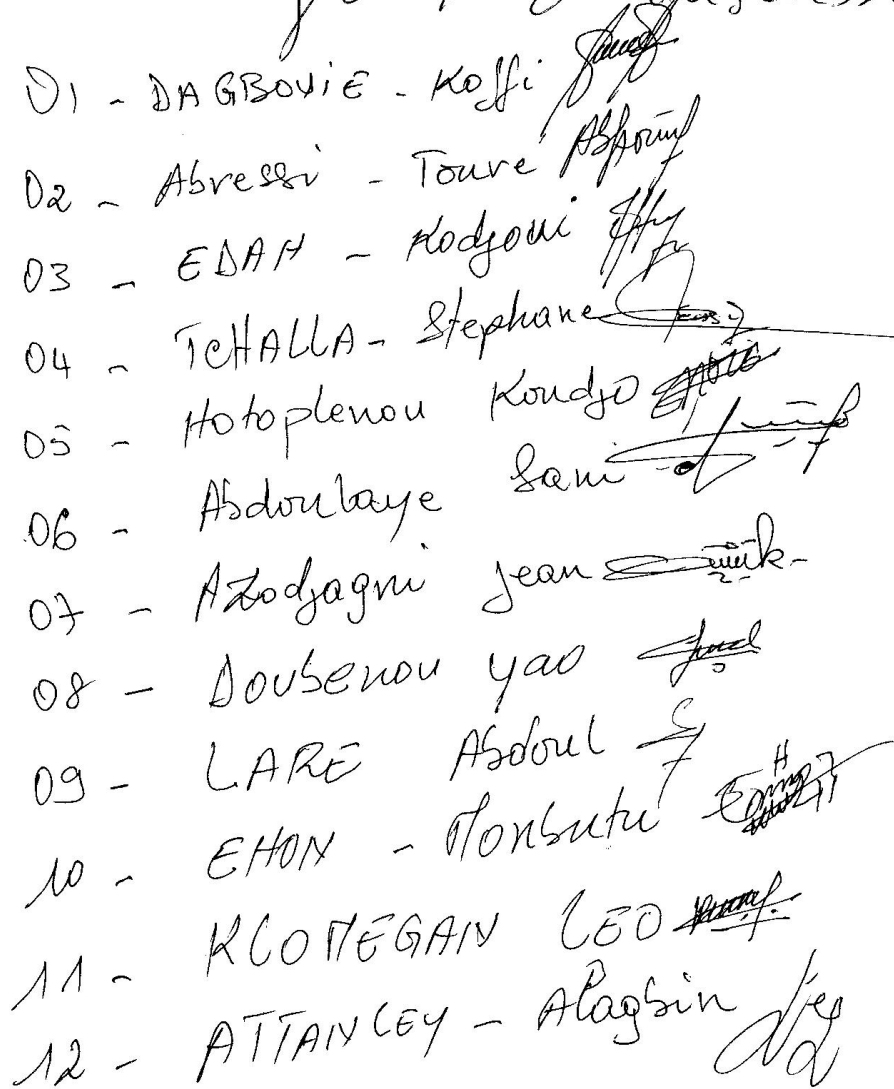 01 - DAGBOVIE - Koffi
02 - Abressi - Toure
03 - EDAH - Kodjovi
04 - TCHALLA - Stephane
05 - Hotoplenou Koudjo
06 - Abdoulaye Sani
07 - Azodjagni Jean
08 - Dovbenou yao
09 - LARE Abdoul
10 - EHON - Monbutu
11 - KLOMEGAN LEO
12 - ATTANLEY - Alagbin